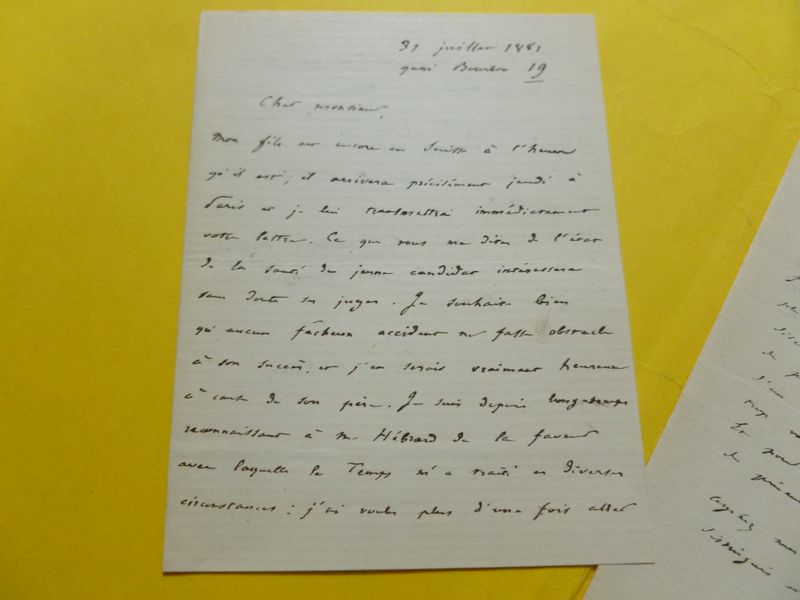 31 juillet 1881
quai Bourbon 19
Cher monsieur,
Mon fils est encore en Suisse à l'heure
qu'il est ; il arrivera précisément jeudi à
Paris et je lui transmettrai immédiatement
votre lettre. Ce que vous me dites de l'état
de la santé du jeune candidat intéressera
sans doute ses juges. Je souhaite bien
qu'aucun fâcheux accident ne fasse obstacle
à son succès, et j'en serais vraiment heureux
à cause de son père. Je suis depuis longtemps
reconnaissant à M. Hébrard de la faveur
avec laquelle le Temps m'a traité en diverses
circonstances : j'ai voulu plus d'une fois aller